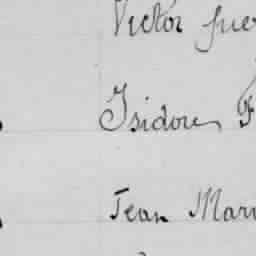 Victor
Isidore
Jean Mari